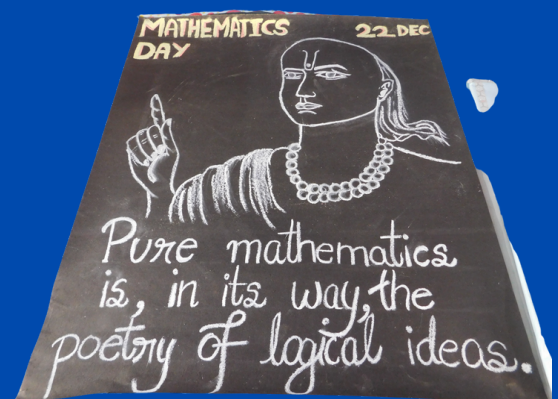 MATHEMATICS
DAY
22 DEC
Pure mathematics
is, in its way, the
poetry of logical ideas.